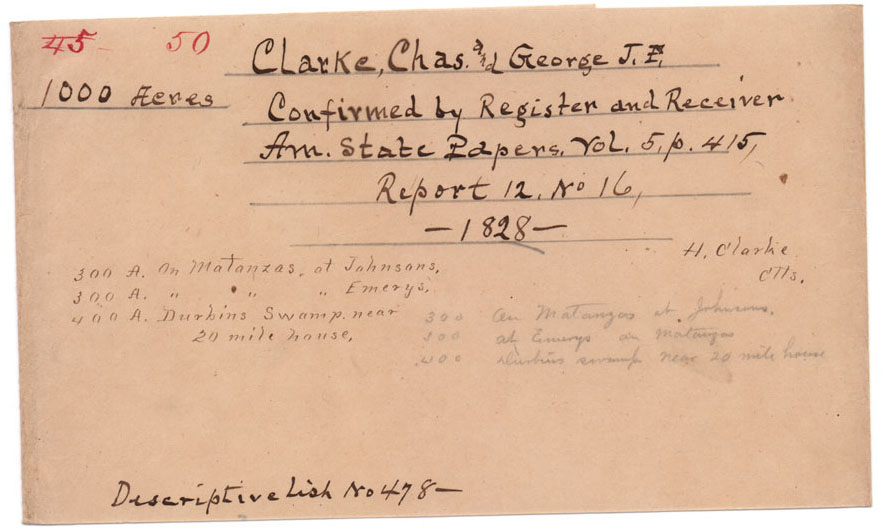 45- 50
Clarke, Chas. and George J. F.
1000 Acres
Confirmed by Register and Receiver
Am. State Papers. Vol. 5, p. 415,
Report 12. No 16,
-1828-
H. Clarke
Atts.
300 A. On Matanzas, at Johnsons,
300 A. " " " Emerys,
400 A. Durbins Swamp. near
20 mile house,
300 On Matanzas at Johnsons,
300 at Emerys on Matanzas
400 Durbins swamp near 20 mile house
Descriptive List No 478-